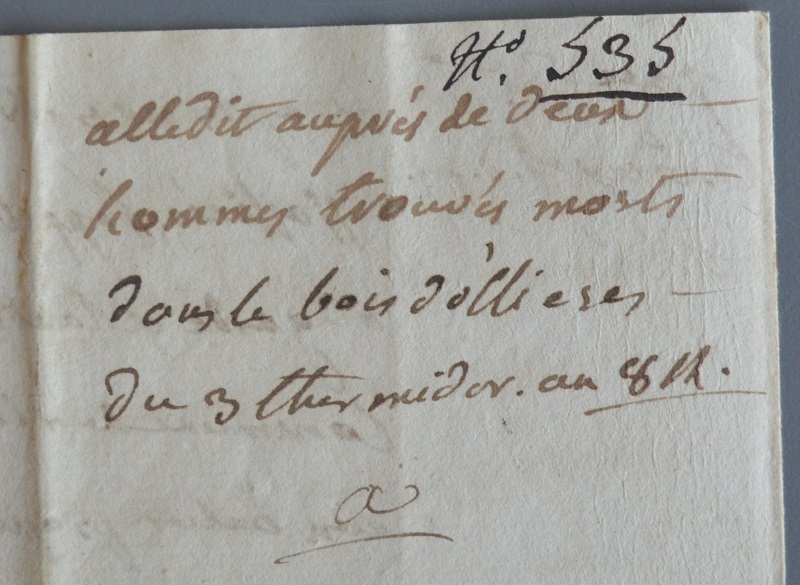 No. 535
alledit auprés de deux
hommes trouvés morts
dans le bois d'ollieres
du 3 thermidor. an 8 R.
a